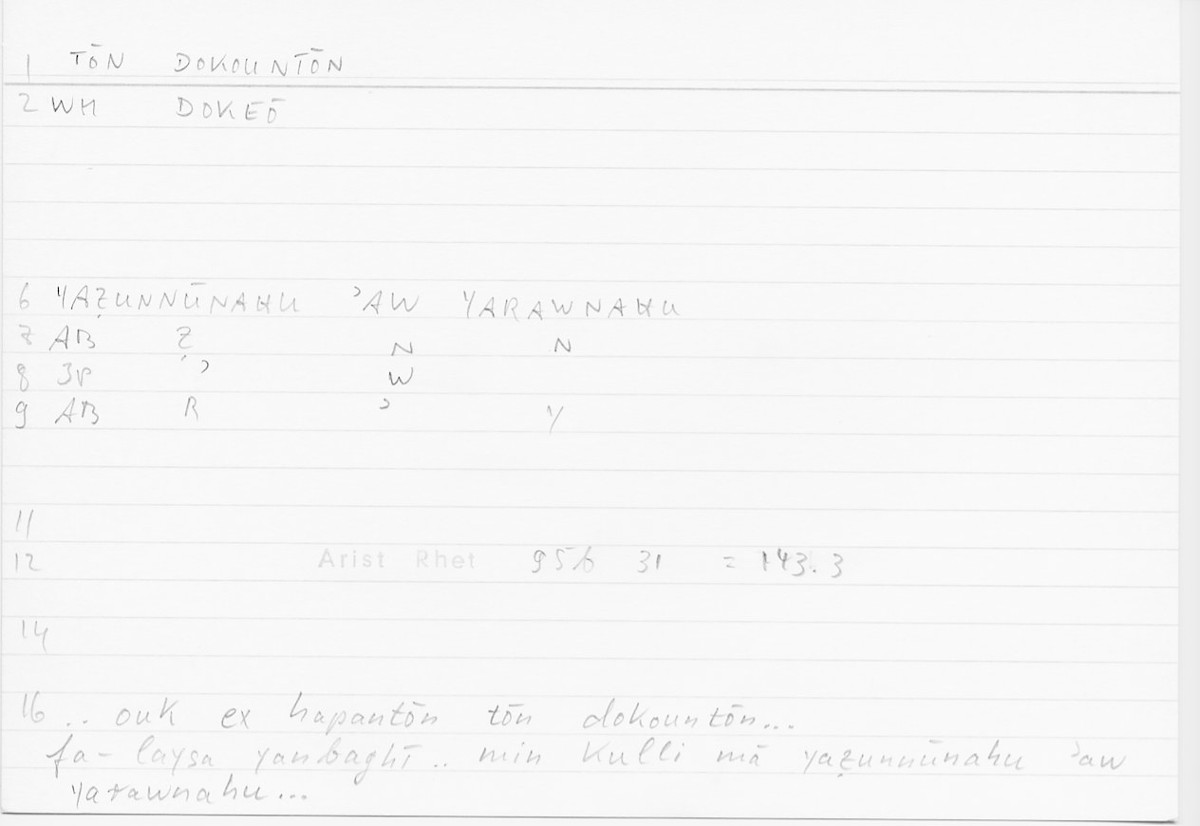 1 TŌN DOKOUNTŌN
2 WH DOKEŌ
6 YAẒUNNŪNAHU ʾAW YARAWNAHU
7 AB Ẓ N N
8 3P ʾ W
9 AB R ʾ Y
11
12 Arist Rhet 95b 31 = 143.3
14
16 .. ouk ex hapantōn tōn dokountōn...
fa-laysa yanbaghī.. min kulli mā yaẓunnūnahu ʾaw
yarawnahu...